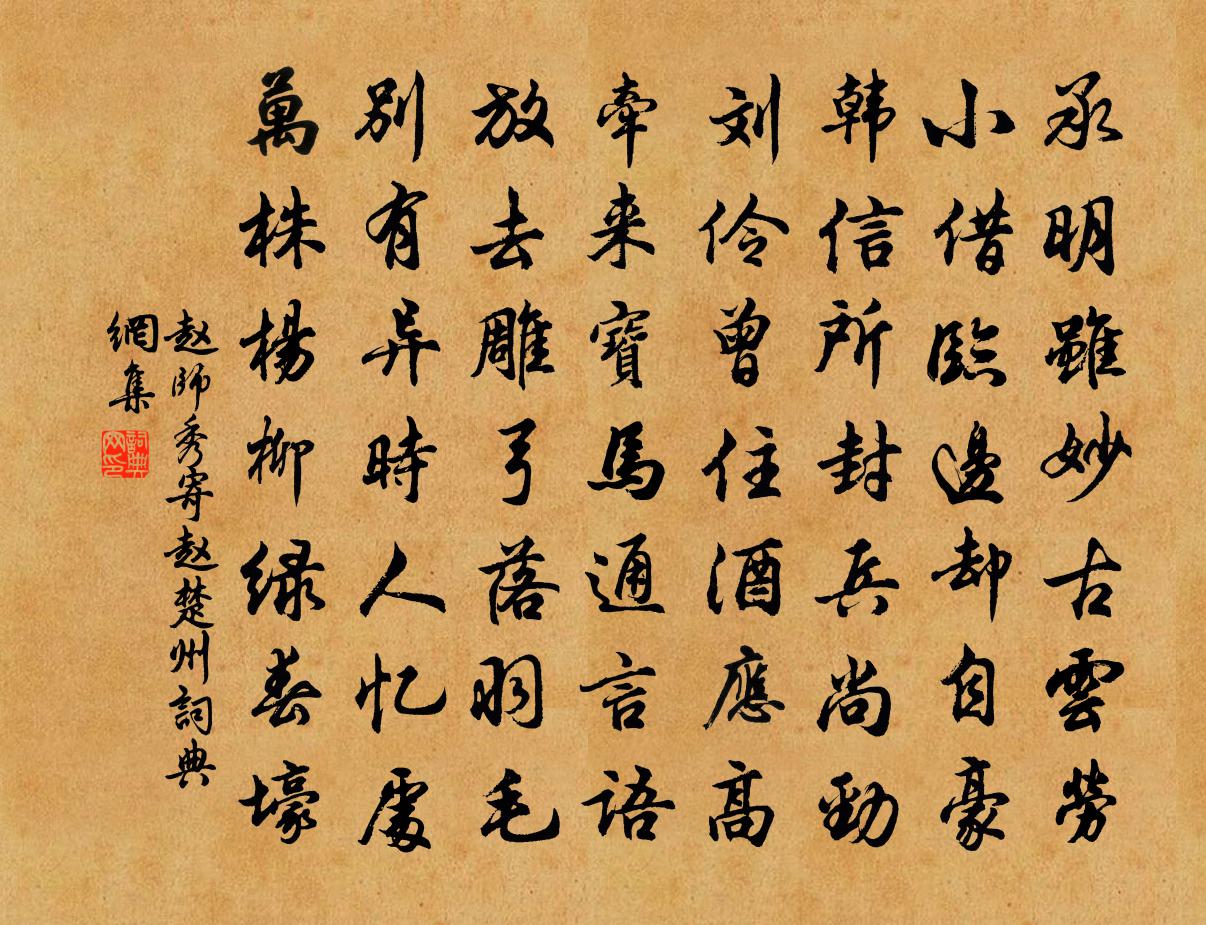 承明雖妙古雲勞
小借臨邊却自豪
韩信所封兵尚勁
刘伶曾住酒應高
牽来寶馬通言語
放去雕弓落羽毛
别有异時人忆處
萬株楊柳绿春壕
赵師秀寄赵楚州詞典
網集
詞典
网印